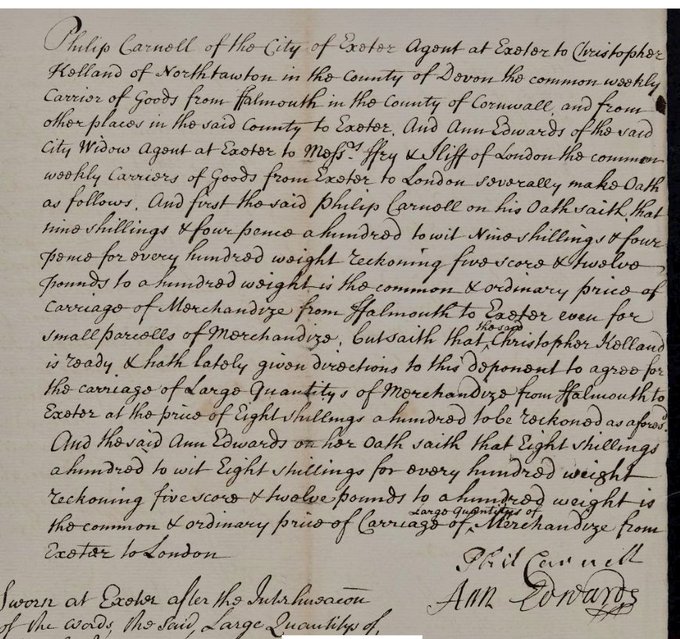 Philip Carnell of the City of Exeter Agent at Exeter to Christopher
Kelland of Northtawton in the County of Devon the common weekly
Carrier of Goods from ffalmouth in the County of Cornwall, and from
other places in the said County to Exeter. And Ann Edwards of the said
City Widow Agent at Exeter to Messrs. ffry & Iliff of London the common
weekly Carriers of Goods from Exeter to London severally make Oath
as follows. And first the said Philip Carnell on his Oath saith, that
nine shillings & four pence a hundred to wit Nine shillings & four
pence for every hundred weight reckoning five score & twelve
pounds to a hundred weight is the common & ordinary price of
Carriage of Merchandize from ffalmouth to Exeter even for
small parcells of Merchandize, but saith that the said Christopher Kelland
is ready & hath lately given directions to this deponent to agree for
the carriage of Large Quantitys of Merchandize from ffalmouth to
Exeter at the price of Eight shillings a hundred to be reckoned as afores.d
And the said Ann Edwards on her Oath saith that Eight shillings
a hundred to wit Eight shillings for every hundred weight
reckoning five score & twelve pounds to a hundred weight is
the common & ordinary price of Carriage of Large Quantitys of Merchandize from
Exeter to London
Phil Carnell
Ann Edwards
Sworn at Exeter after the Interlineacon
of the words, the said, Large Quantitys of,